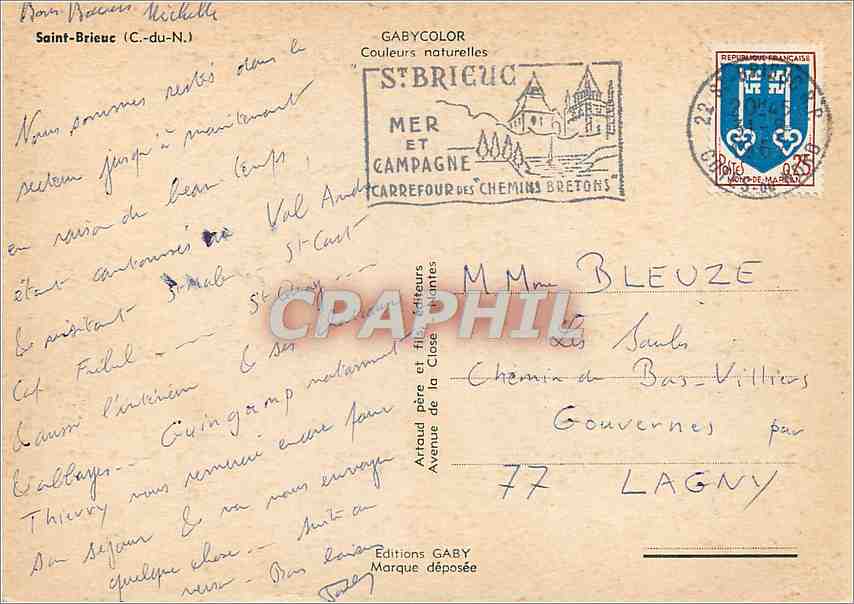 Bons Baisers Michelle
Saint-Brieuc (C.-du-N.)
GABYCOLOR
Couleurs naturelles
ST BRIEUC
MER
ET
CAMPAGNE
CARREFOUR DES "CHEMINS BRETONS"
REPUBLIQUE FRANÇAISE
POSTES 0,25
MONT-DE-MARSAN
Nous sommes restés dans le
secteur jusqu'à maintenant
en raison du beau temps,
étant cantonnés au Val André
& visitant St-Malo St-Cast
Cap Fréhel --- St Quay ---
& aussi l'intérieur & ses
& abbayes -- Guingamp notamment
Thierry vous remercie encore pour
son séjour & va vous envoyer
quelque chose -- suite au
verso - Bons baisers
CPAPHIL
Artaud père et fils, éditeurs
Avenue de la Close Nantes
M Mme BLEUZE
Les Saules
Chemin de Bas-Villiers
Gouvernes par
77 LAGNY
Editions GABY
Marque déposée